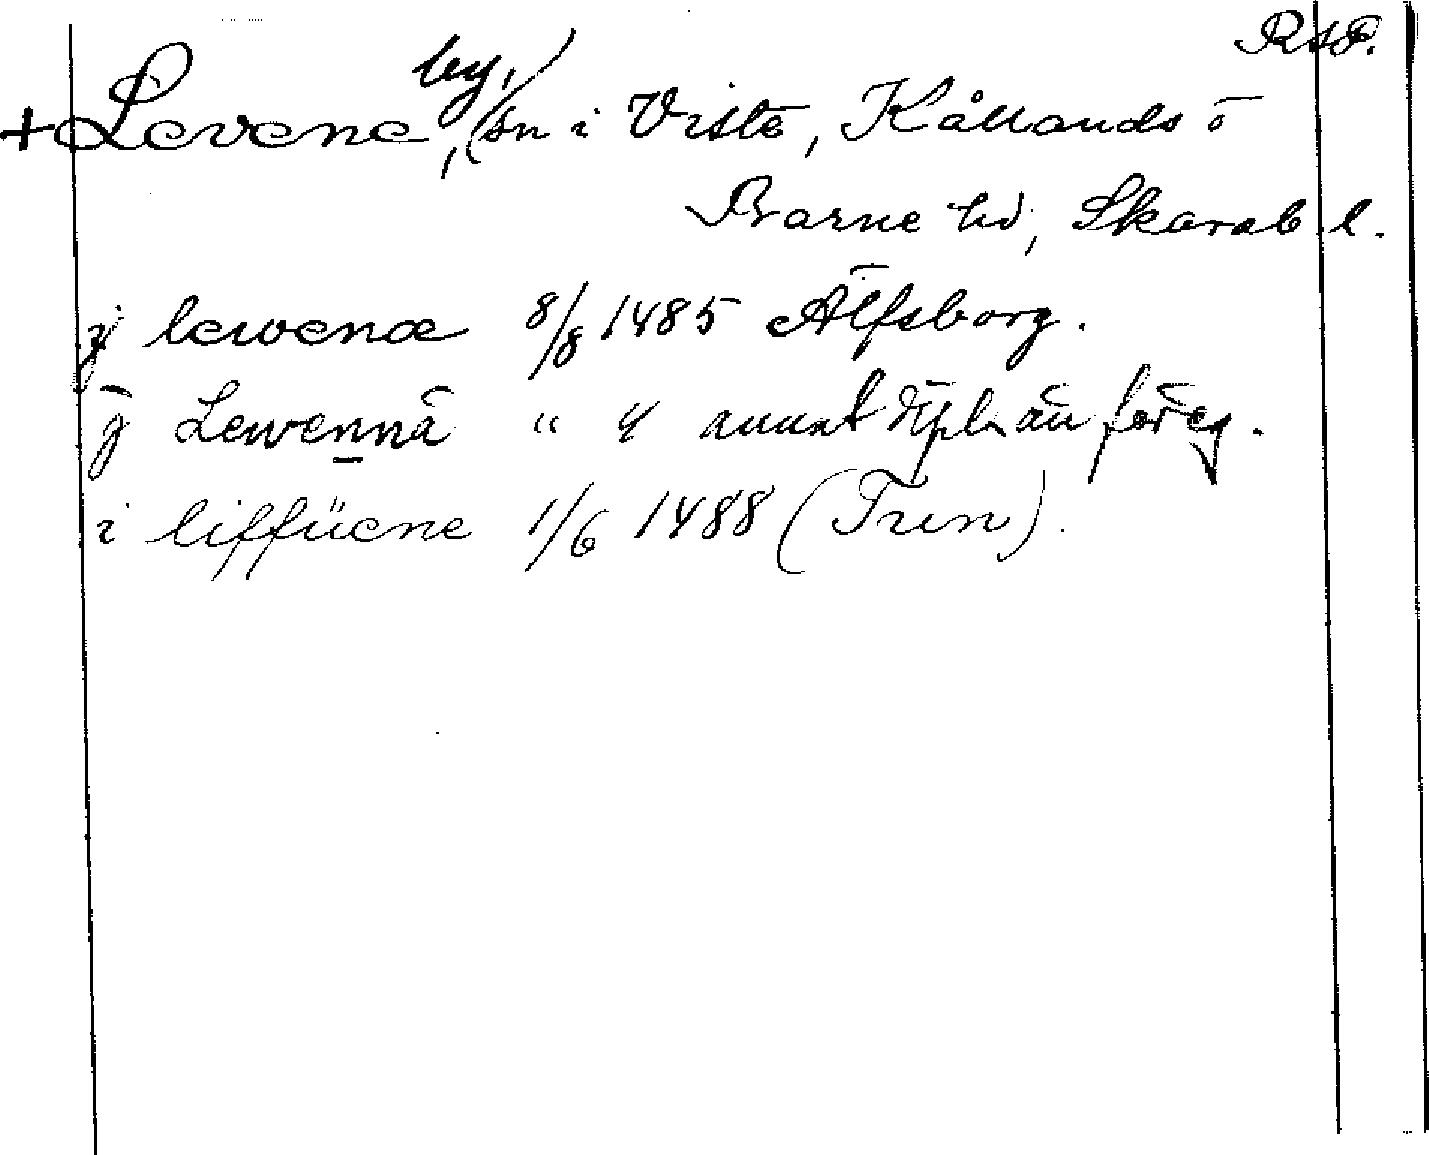 RAP.
+ Levene, by, (sn i Viste, Kållands ö
Barne hd, Skarab. l.
ÿ lewenæ 8/8 1485 Älfsborg.
ÿ Lewennä " 4 annat dipl. än föreg.
i liffüene 1/6 1488 (Tun).